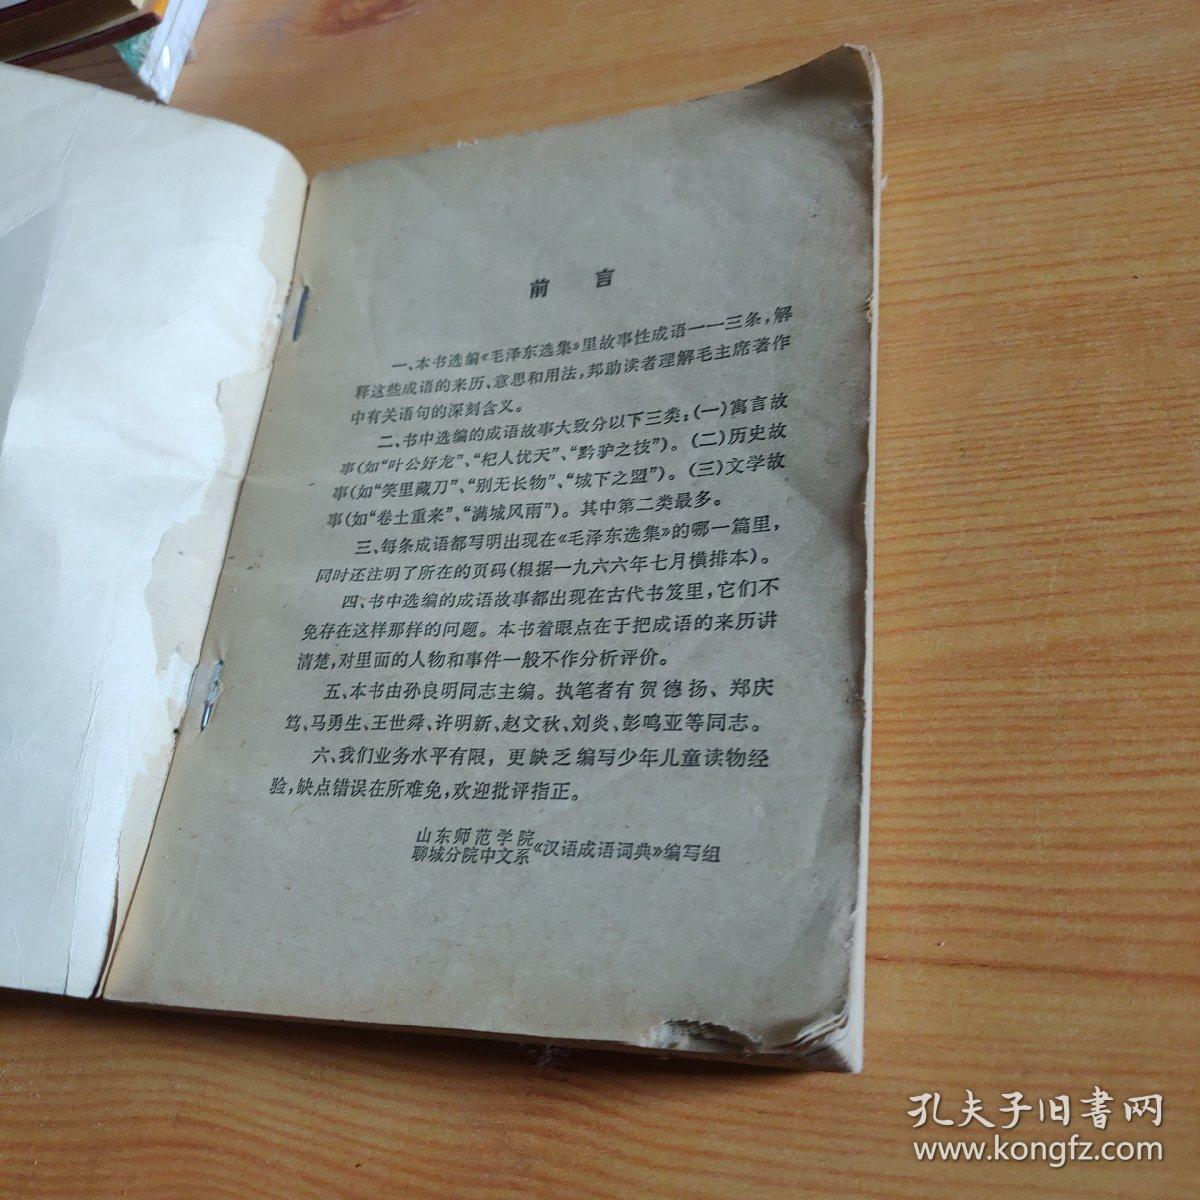 前言
一、本书选编《毛泽东选集》里故事性成语一一三条，解
释这些成语的来历、意思和用法，邦助读者理解毛主席著作
中有关语句的深刻含义。
二、书中选编的成语故事大致分以下三类：（一）寓言故
事（如“叶公好龙”、“杞人忧天”、“黔驴之技”）。（二）历史故
事（如“笑里藏刀”、“别无长物”、“城下之盟”）。（三）文学故
事（如“卷土重来”、“满城风雨”）。其中第二类最多。
三、每条成语都写明出现在《毛泽东选集》的哪一篇里，
同时还注明了所在的页码（根据一九六六年七月横排本）。
四、书中选编的成语故事都出现在古代书笈里，它们不
免存在这样那样的问题。本书着眼点在于把成语的来历讲
清楚，对里面的人物和事件一般不作分析评价。
五、本书由孙良明同志主编。执笔者有贺德扬、郑庆
笃、马勇生、王世舜、许明新、赵文秋、刘炎、彭鸣亚等同志。
六、我们业务水平有限，更缺乏编写少年儿童读物经
验，缺点错误在所难免，欢迎批评指正。
山东师范学院
聊城分院中文系《汉语成语词典》编写组
孔夫子旧書网
www.kongfz.com